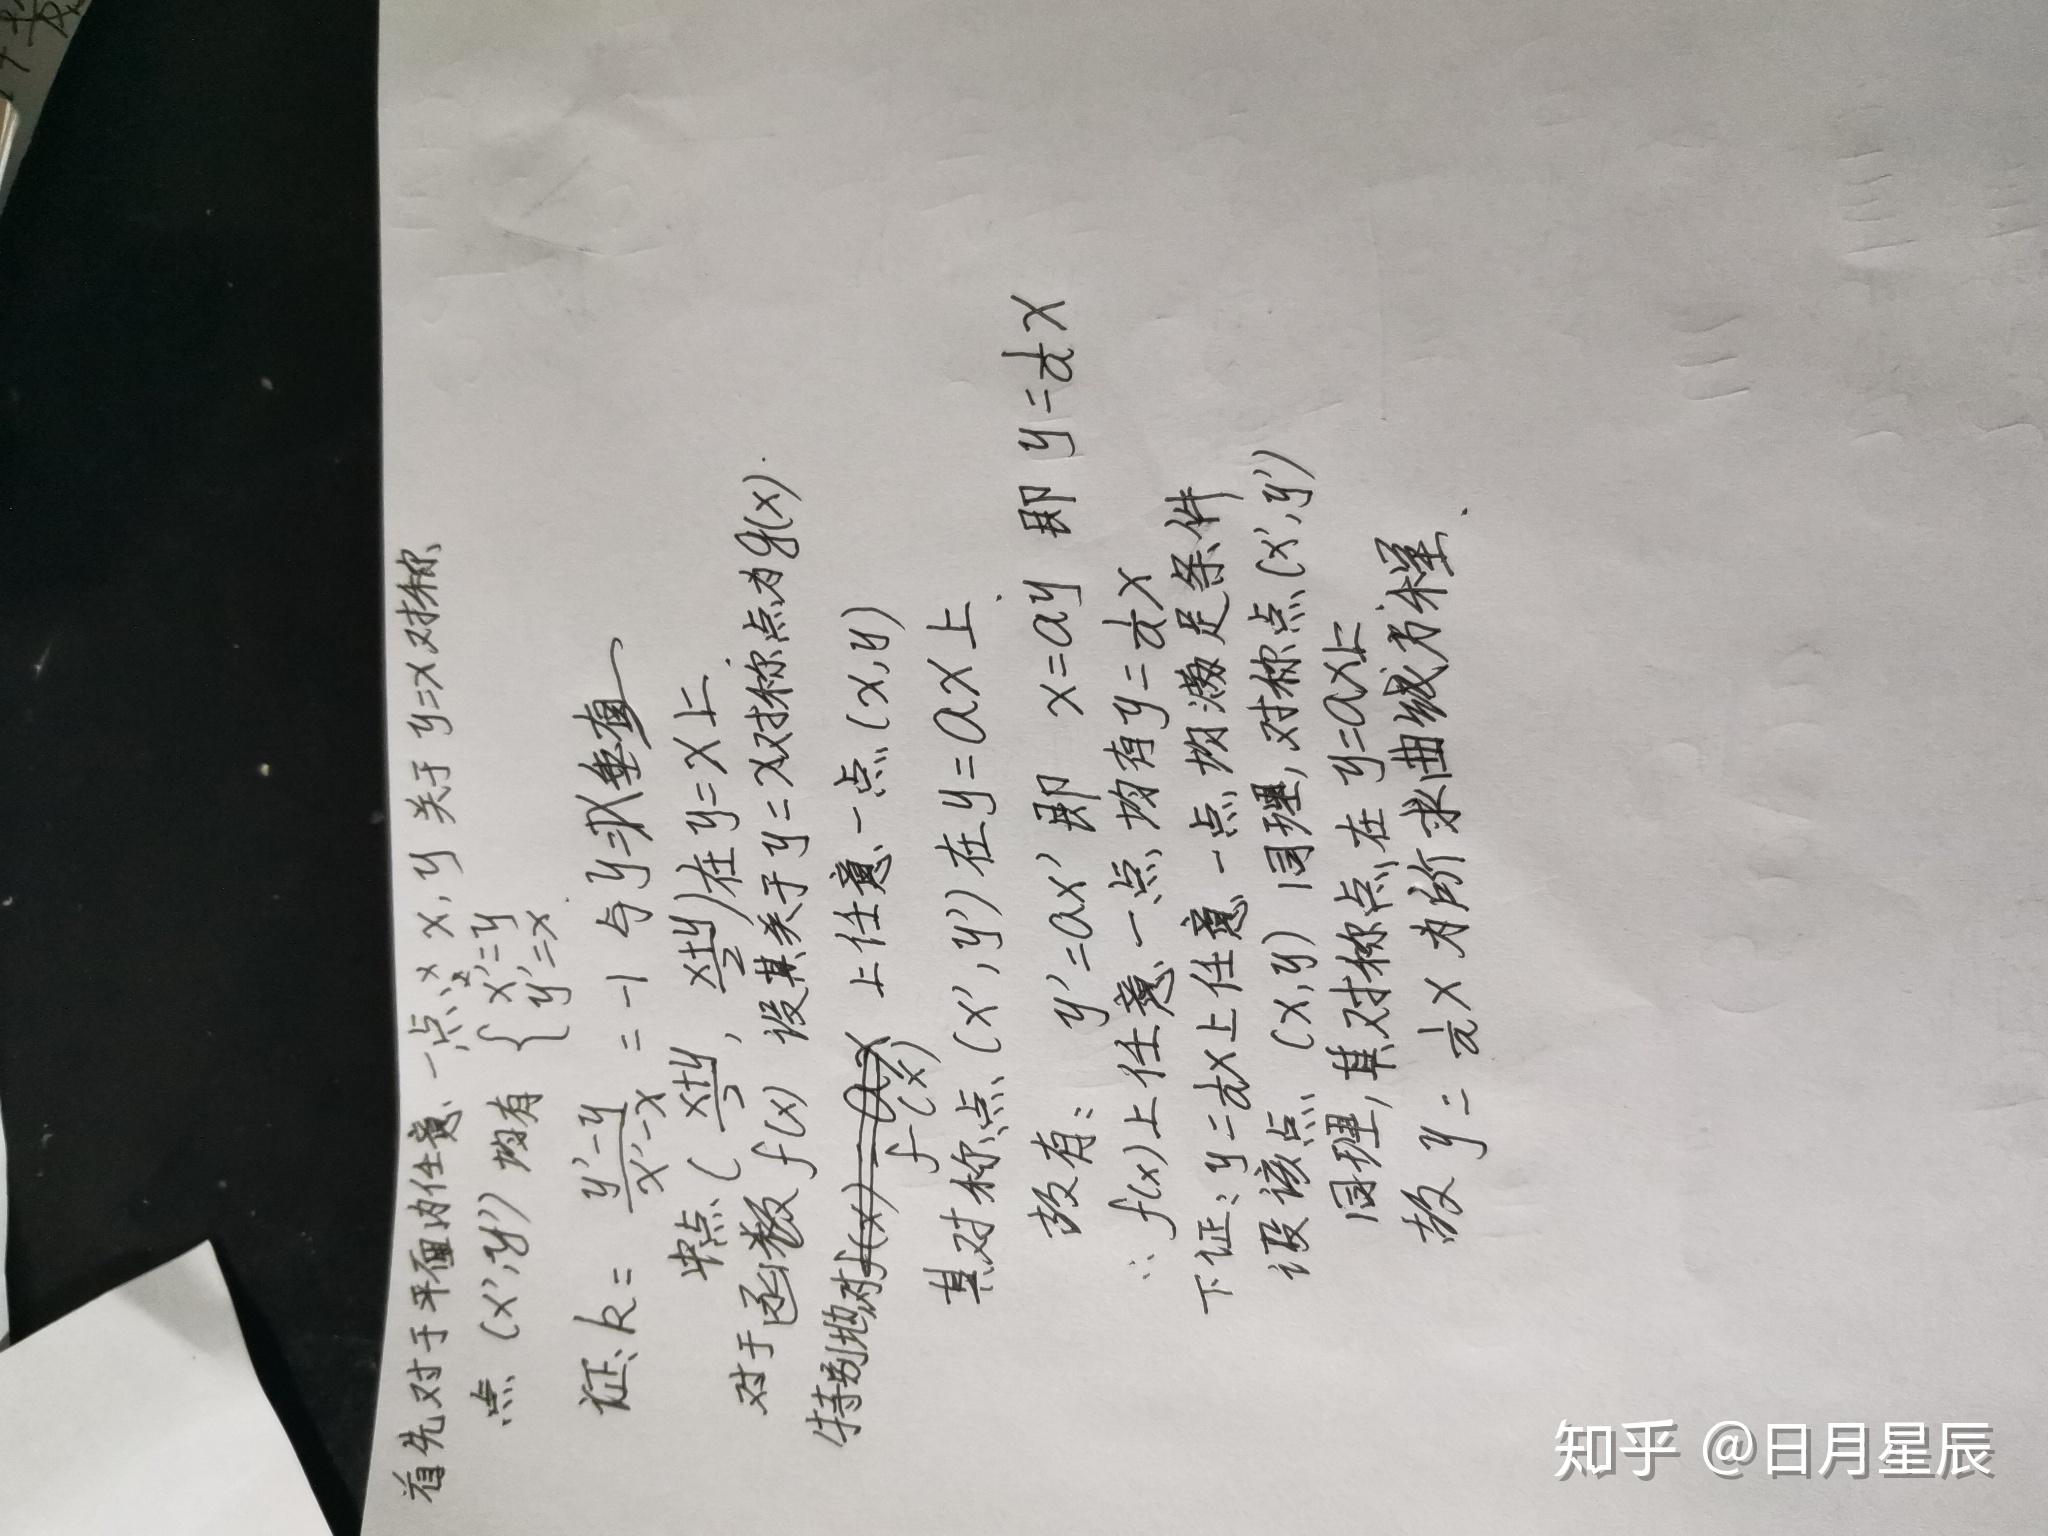 首先对于平面内任意一点 x, y 关于 y=x 对称
点 (x', y') 均有 { x'=y
y'=x
证 k = (y'-y)/(x'-x) = -1 与 y=x 垂直
中点 ( (x+y)/2 , (x+y)/2 ) 在 y=x 上
对于函数 f(x) 设其关于 y=x 对称点为 g(x).
特别地对 f(x) 上任意一点 (x, y)
其对称点 (x', y') 在 y=ax 上.
故有: y'=ax' 即 x=ay 即 y=1/a x
∴ f(x) 上任意一点均有 y=1/a x
下证: y=1/a x 上任意一点均满足条件
设该点 (x, y) 同理, 对称点 (x', y')
同理, 其对称点在 y=ax 上
故 y=1/a x 为所求曲线方程.
知乎 @日月星辰